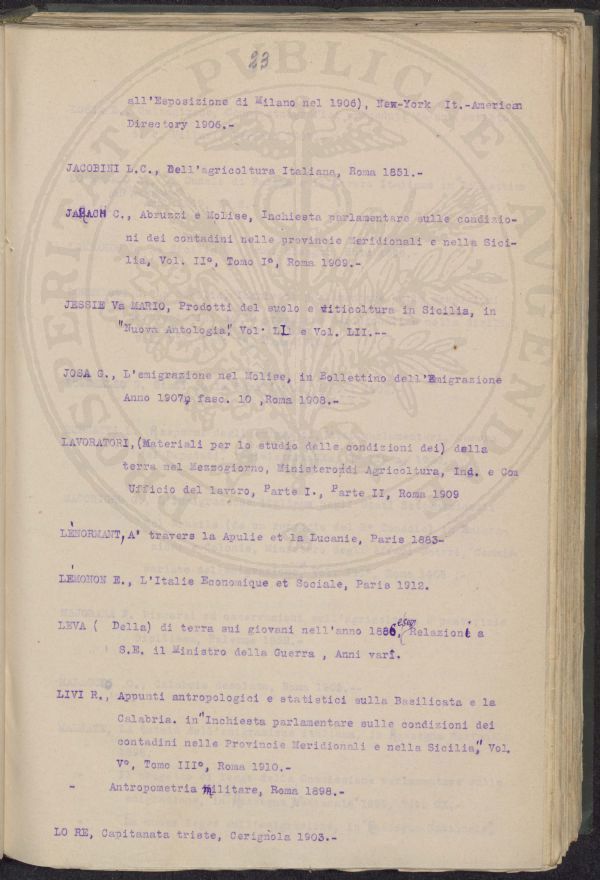 23
all'Esposizione di Milano nel 1906), New-York It.-American
Directory 1906.-
JACOBINI L.C., Dell'agricoltura Italiana, Roma 1851.-
JARACH C., Abruzzi e Molise, Inchiesta parlamentare sulle condizio-
ni dei contadini nelle provincie Meridionali e nella Sici-
lia, Vol. II°, Tomo I°, Roma 1909.-
JESSIE Va MARIO, Prodotti del suolo e viticoltura in Sicilia, in
"Nuova Antologia", Vol. LI e Vol. LII.--
JOSA G., L'emigrazione nel Molise, in Bollettino dell'Emigrazione
Anno 1907, fasc. 10 ,Roma 1908.-
LAVORATORI,(Materiali per lo studio delle condizioni dei) della
terra nel Mezzogiorno, Ministero di Agricoltura, Ind. e Com
Ufficio del lavoro, Parte I., Parte II, Roma 1909
LÉNORMANT, A' travers la Apulie et la Lucanie, Paris 1883-
LÉMONON E., L'Italie Economique et Sociale, Paris 1912.
LEVA ( Della) di terra sui giovani nell'anno 1886, Relazioni a
S.E. il Ministro della Guerra , Anni vari.
LIVI R., Appunti antropologici e statistici sulla Basilicata e la
Calabria. in "Inchiesta parlamentare sulle condizioni dei
contadini nelle Provincie Meridionali e nella Sicilia", Vol.
V°, Tomo III°, Roma 1910.-
- Antropometria militare, Roma 1898.-
LO RE, Capitanata triste, Cerignola 1903.-
PROSPERITATI PUBLICAE AUGENDAE